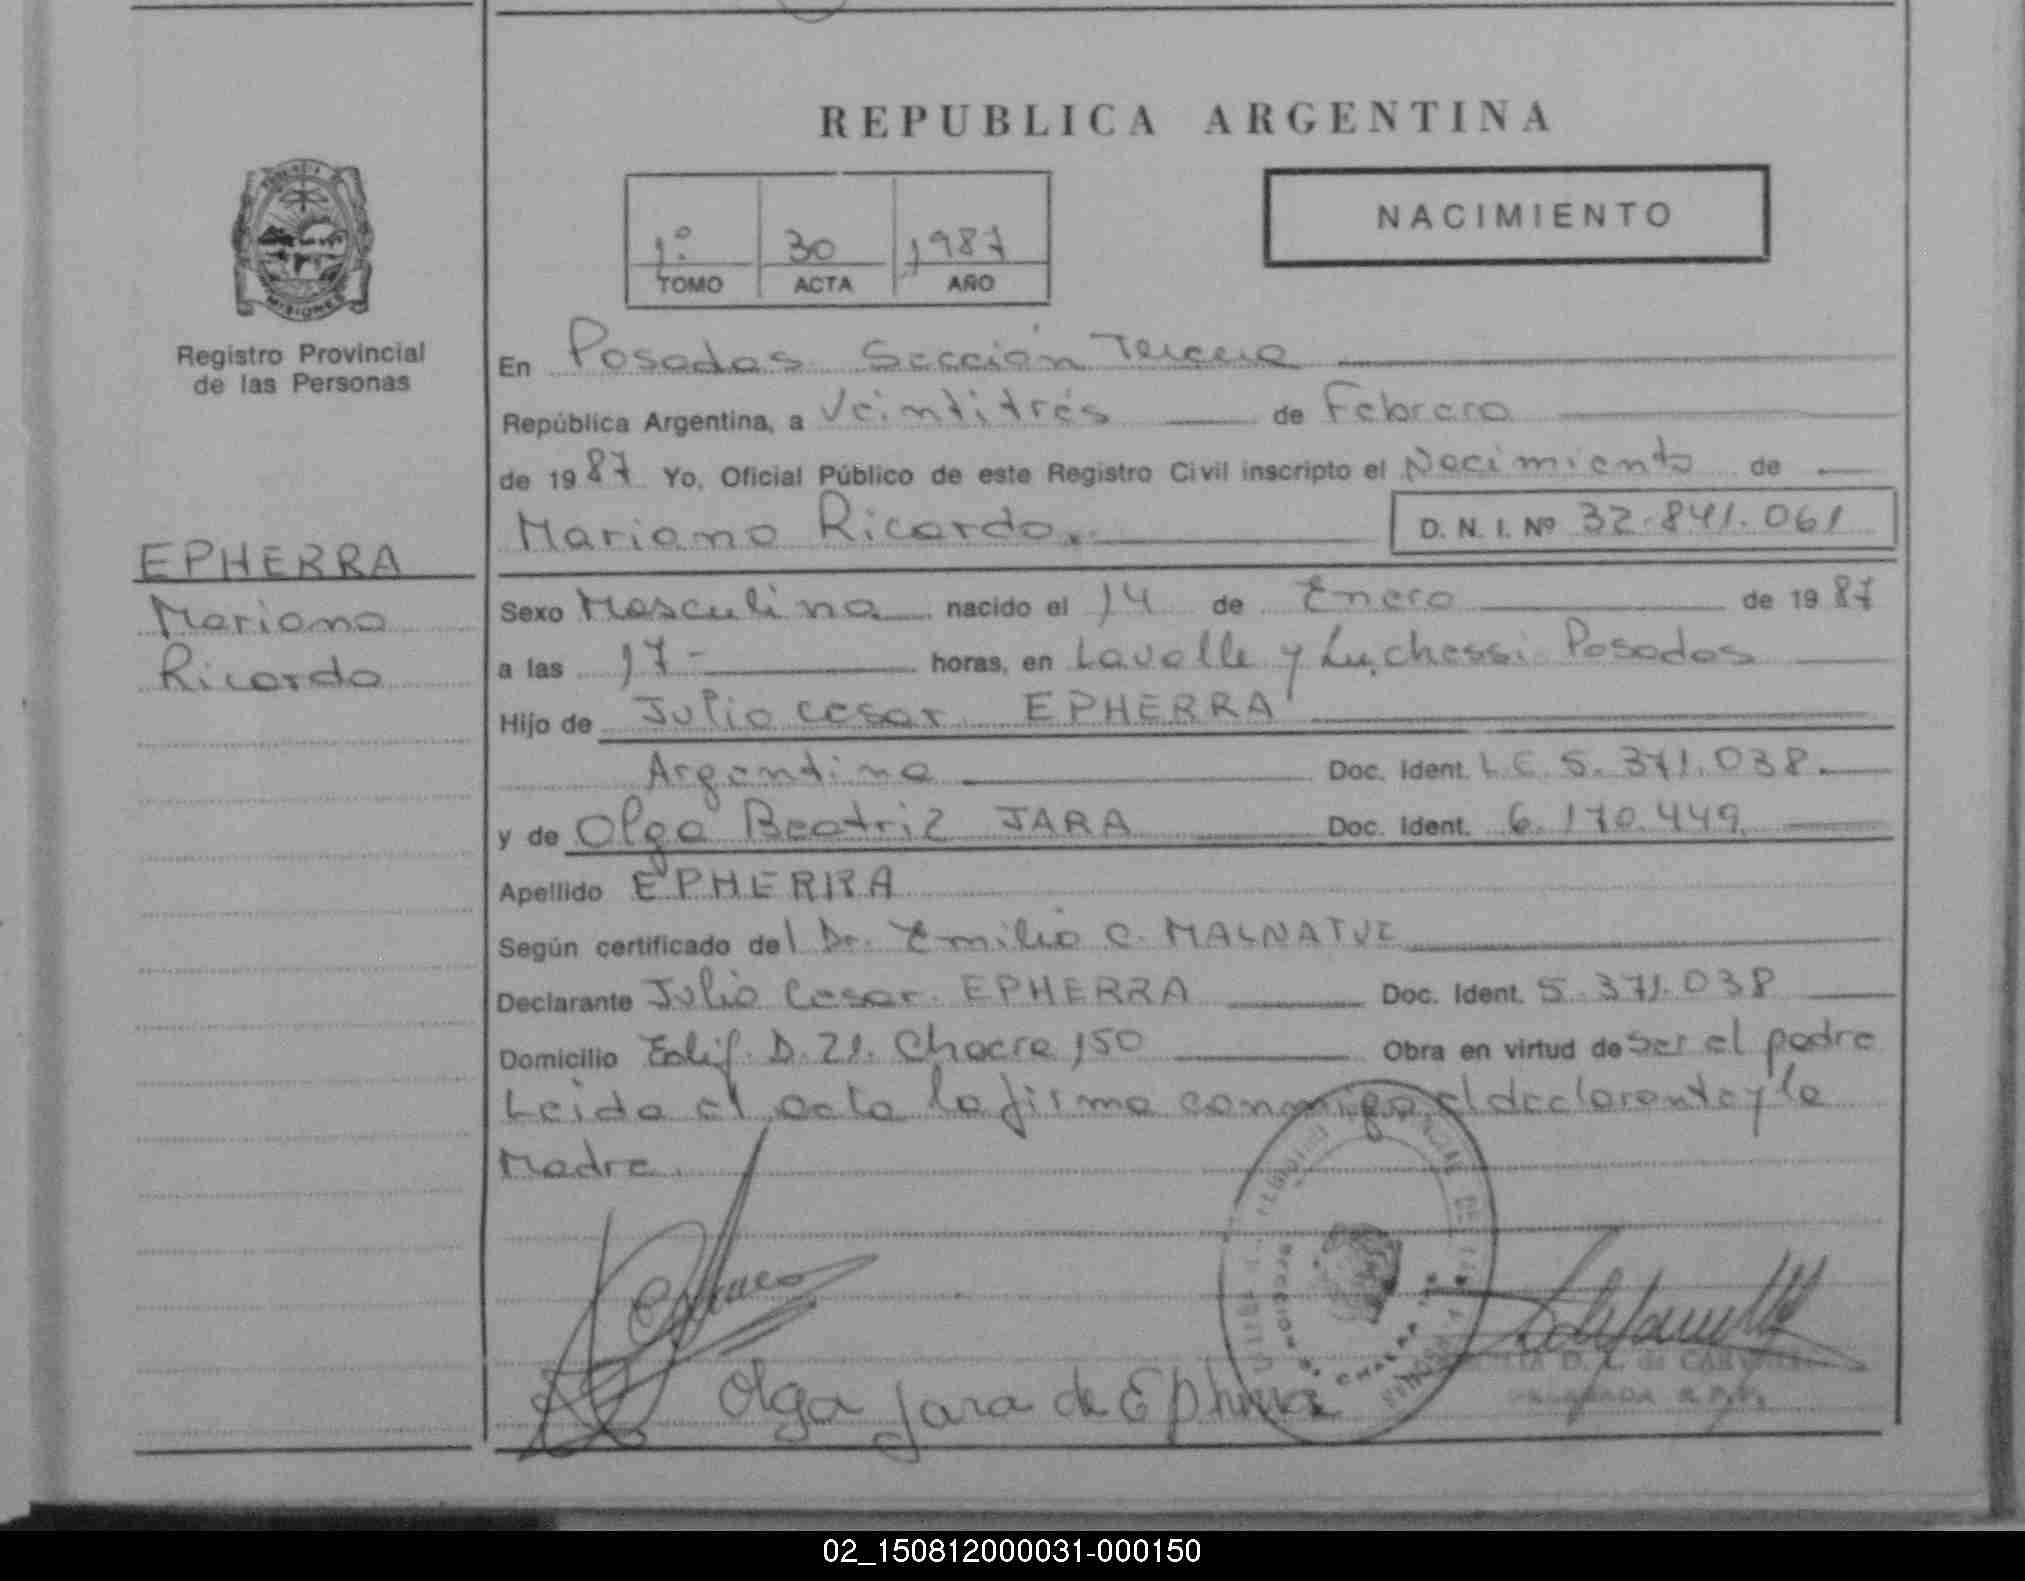 REPUBLICA ARGENTINA
NACIMIENTO
1º 30 1987
TOMO ACTA AÑO
MISIONES
Registro Provincial
de las Personas
EPHERRA
Mariano
Ricardo
En Posadas Sección Tercera
República Argentina, a Veintitrés de Febrero
de 1987 Yo, Oficial Público de este Registro Civil inscripto el Nacimiento de
Mariano Ricardo. D. N. I. Nº 32.841.061
Sexo Masculino nacido el 14 de Enero de 1987
a las 17- horas, en Lavalle y Luchessi Posadas
Hijo de Julio Cesar EPHERRA
Argentino Doc. Ident. L.E. 5.371.038.
y de Olga Beatriz JARA Doc. Ident. 6.170.449
Apellido EPHERRA
Según certificado del Dr. Emilio C.
Declarante Julio Cesar EPHERRA Doc. Ident. 5.371.038
Domicilio Edif. D. 21. Chacra 150 Obra en virtud de ser el padre
Leida el acta la firma conmigo el declarante y la
Madre.
Olga Jara de Epherra
02_150812000031-000150